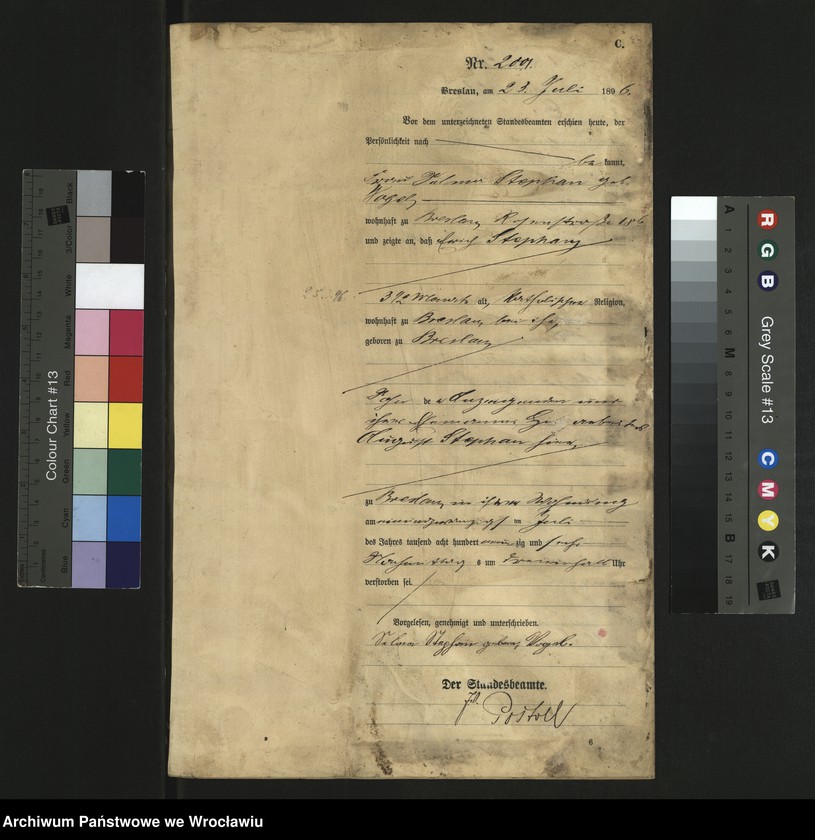 C.
Nr. 2001.
Breslau, am 23. Juli 1896.
Vor dem unterzeichneten Standesbeamten erschien heute, der
Persönlichkeit nach
be kannt,
Frau Selma Stephan geb.
Vogel,
wohnhaft zu Breslau, Rosenstraße
und zeigte an, daß Erich Stephan,
3 1/2 Monate alt, katholischer Religion,
wohnhaft zu Breslau, bei ihr,
geboren zu Breslau,
Sohn der Anzeigenden und
ihres Ehemannes
August Stephan hier,
zu Breslau, in ihrer Wohnung
am einundzwanzigsten Juli
des Jahres tausend acht hundert neunzig und sechs
Nachmittags um Uhr
verstorben sei.
Vorgelesen, genehmigt und unterschrieben.
Selma Stephan geborene Vogel.
Der Standesbeamte.
Postoll
6
Colour Chart #13
Blue
Cyan
Green
Yellow
Red
Magenta
White
3/Color
Black
Centimetres
Grey Scale #13
R
G
B
C
M
Y
K
A
1
2
3
4
5
6
M
8
9
10
11
12
13
14
15
B
17
18
19
Archiwum Państwowe we Wrocławiu